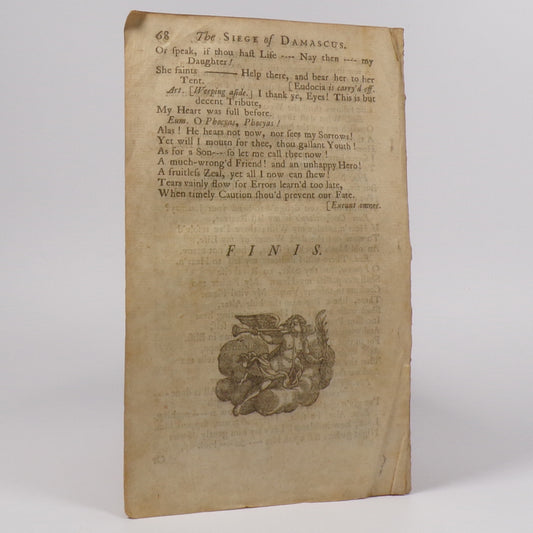 68 The SIEGE of DAMASCUS.
Or speak, if thou hast Life ---- Nay then ---- my
Daughter!
She faints ——— Help there, and bear her to her
Tent. [Eudocia is carry'd off.
Art. [Weeping aside.] I thank ye, Eyes! This is but
decent Tribute,
My Heart was full before.
Eum. O Phocyas, Phocyas!
Alas! He hears not now, nor sees my Sorrows!
Yet will I mourn for thee, thou gallant Youth!
As for a Son--- so let me call thee now!
A much-wrong'd Friend! and an unhappy Hero!
A fruitless Zeal, yet all I now can shew!
Tears vainly flow for Errors learn'd too late,
When timely Caution shou'd prevent our Fate.
[Exeunt omnes.
FINIS.